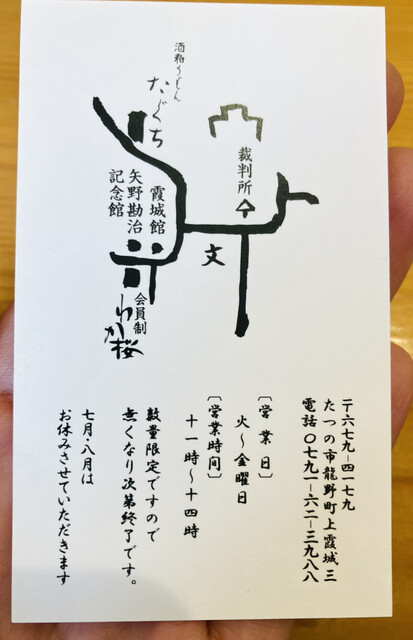 酒粕うどん
たぐち
裁判所
霞城館
矢野勘治
記念館
文
会員制
わか桜
〒六七九-四一七九
たつの市龍野町上霞城三
電話 〇七九一-六二-三九八八
[営業日]
火〜金曜日
[営業時間]
十一時〜十四時
数量限定ですので
無くなり次第終了です。
七月・八月は
お休みさせていただきます